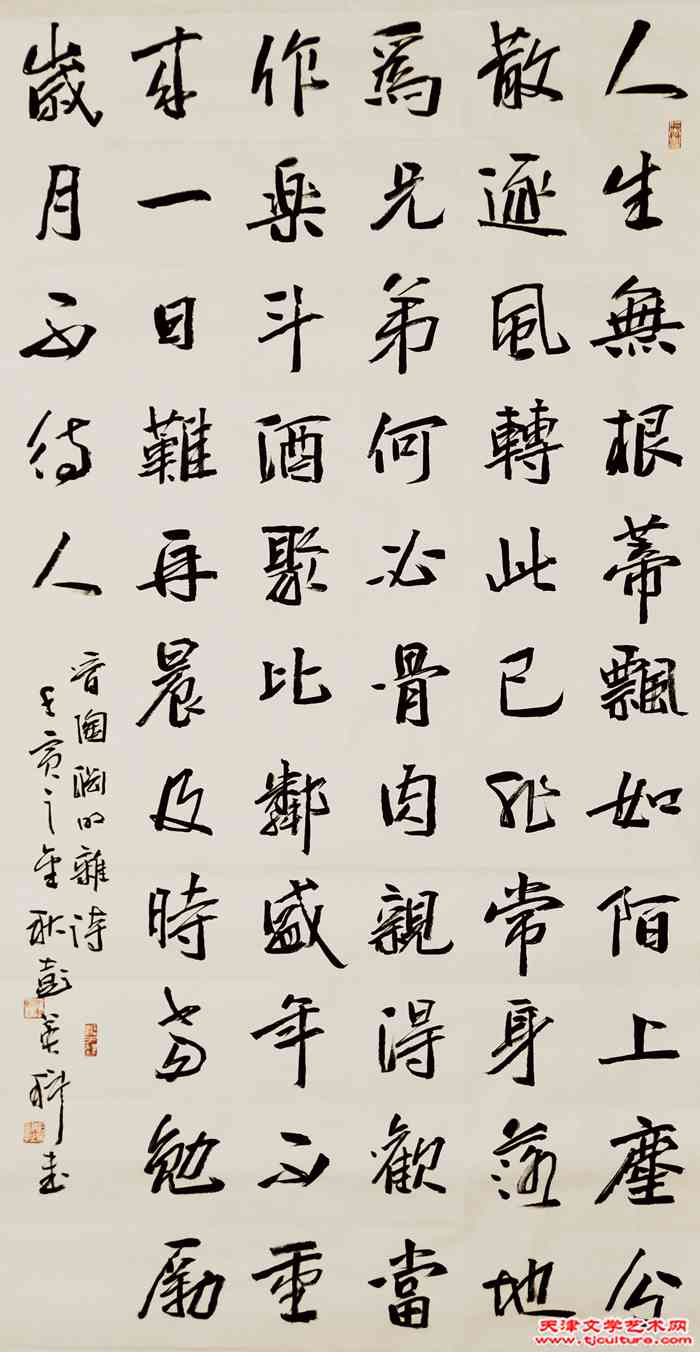 人生無根蒂飄如陌上塵分
散逐風轉此已非常身落地
為兄弟何必骨肉親得歡當
作樂斗酒聚比鄰盛年不重
來一日難再晨及時當勉勵
歲月不待人
晉陶淵明雜詩
壬寅之金秋彭英科書
天津文学艺术网
www.tjculture.com